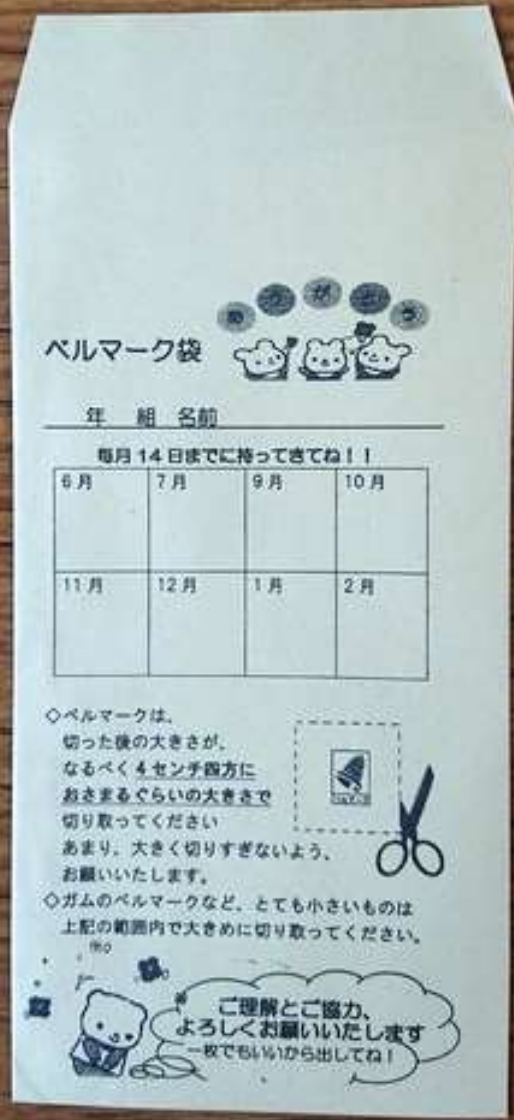 ありがとう
ベルマーク袋
年 組 名前
毎月14日までに持ってきてね！！
6月 7月 9月 10月
11月 12月 1月 2月
◇ベルマークは、
切った後の大きさが、
なるべく4センチ四方に
おさまるぐらいの大きさで
切り取ってください
あまり、大きく切りすぎないよう、
お願いいたします。
◇ガムのベルマークなど、とても小さいものは
上記の範囲内で大きめに切り取ってください。
ご理解とご協力、
よろしくお願いいたします
一枚でもいいから出してね！